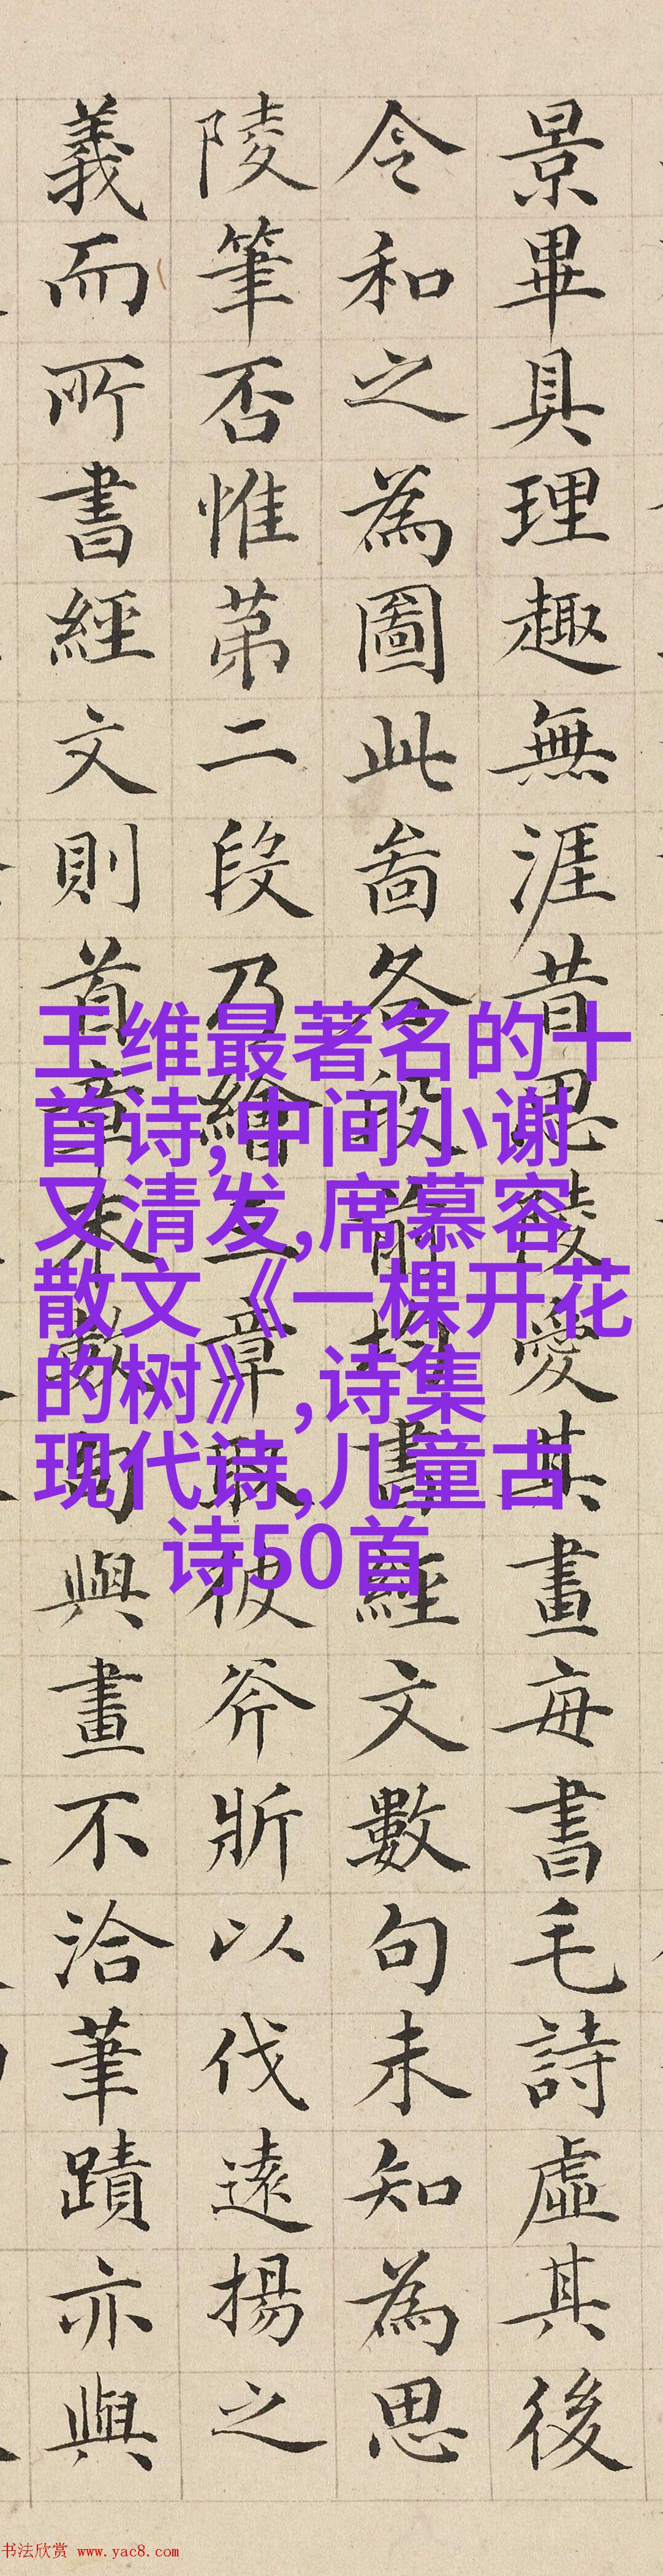 景畢具理趣無涯昔思陵愛其畫每書毛詩虛其後
令和之為圖此啚各段前書經文數句未知為思
陵筆否惟苐二段乃繪三章取彼斧斨以伐遠揚之
義而所書經文則首章末數句與畫不洽筆蹟亦與
王维最著名的十
首诗,中间小谢
又清发,席慕容
散文《一棵开花
的树》,诗集
现代诗,儿童古
诗50首
书法欣赏 www.yac8.com